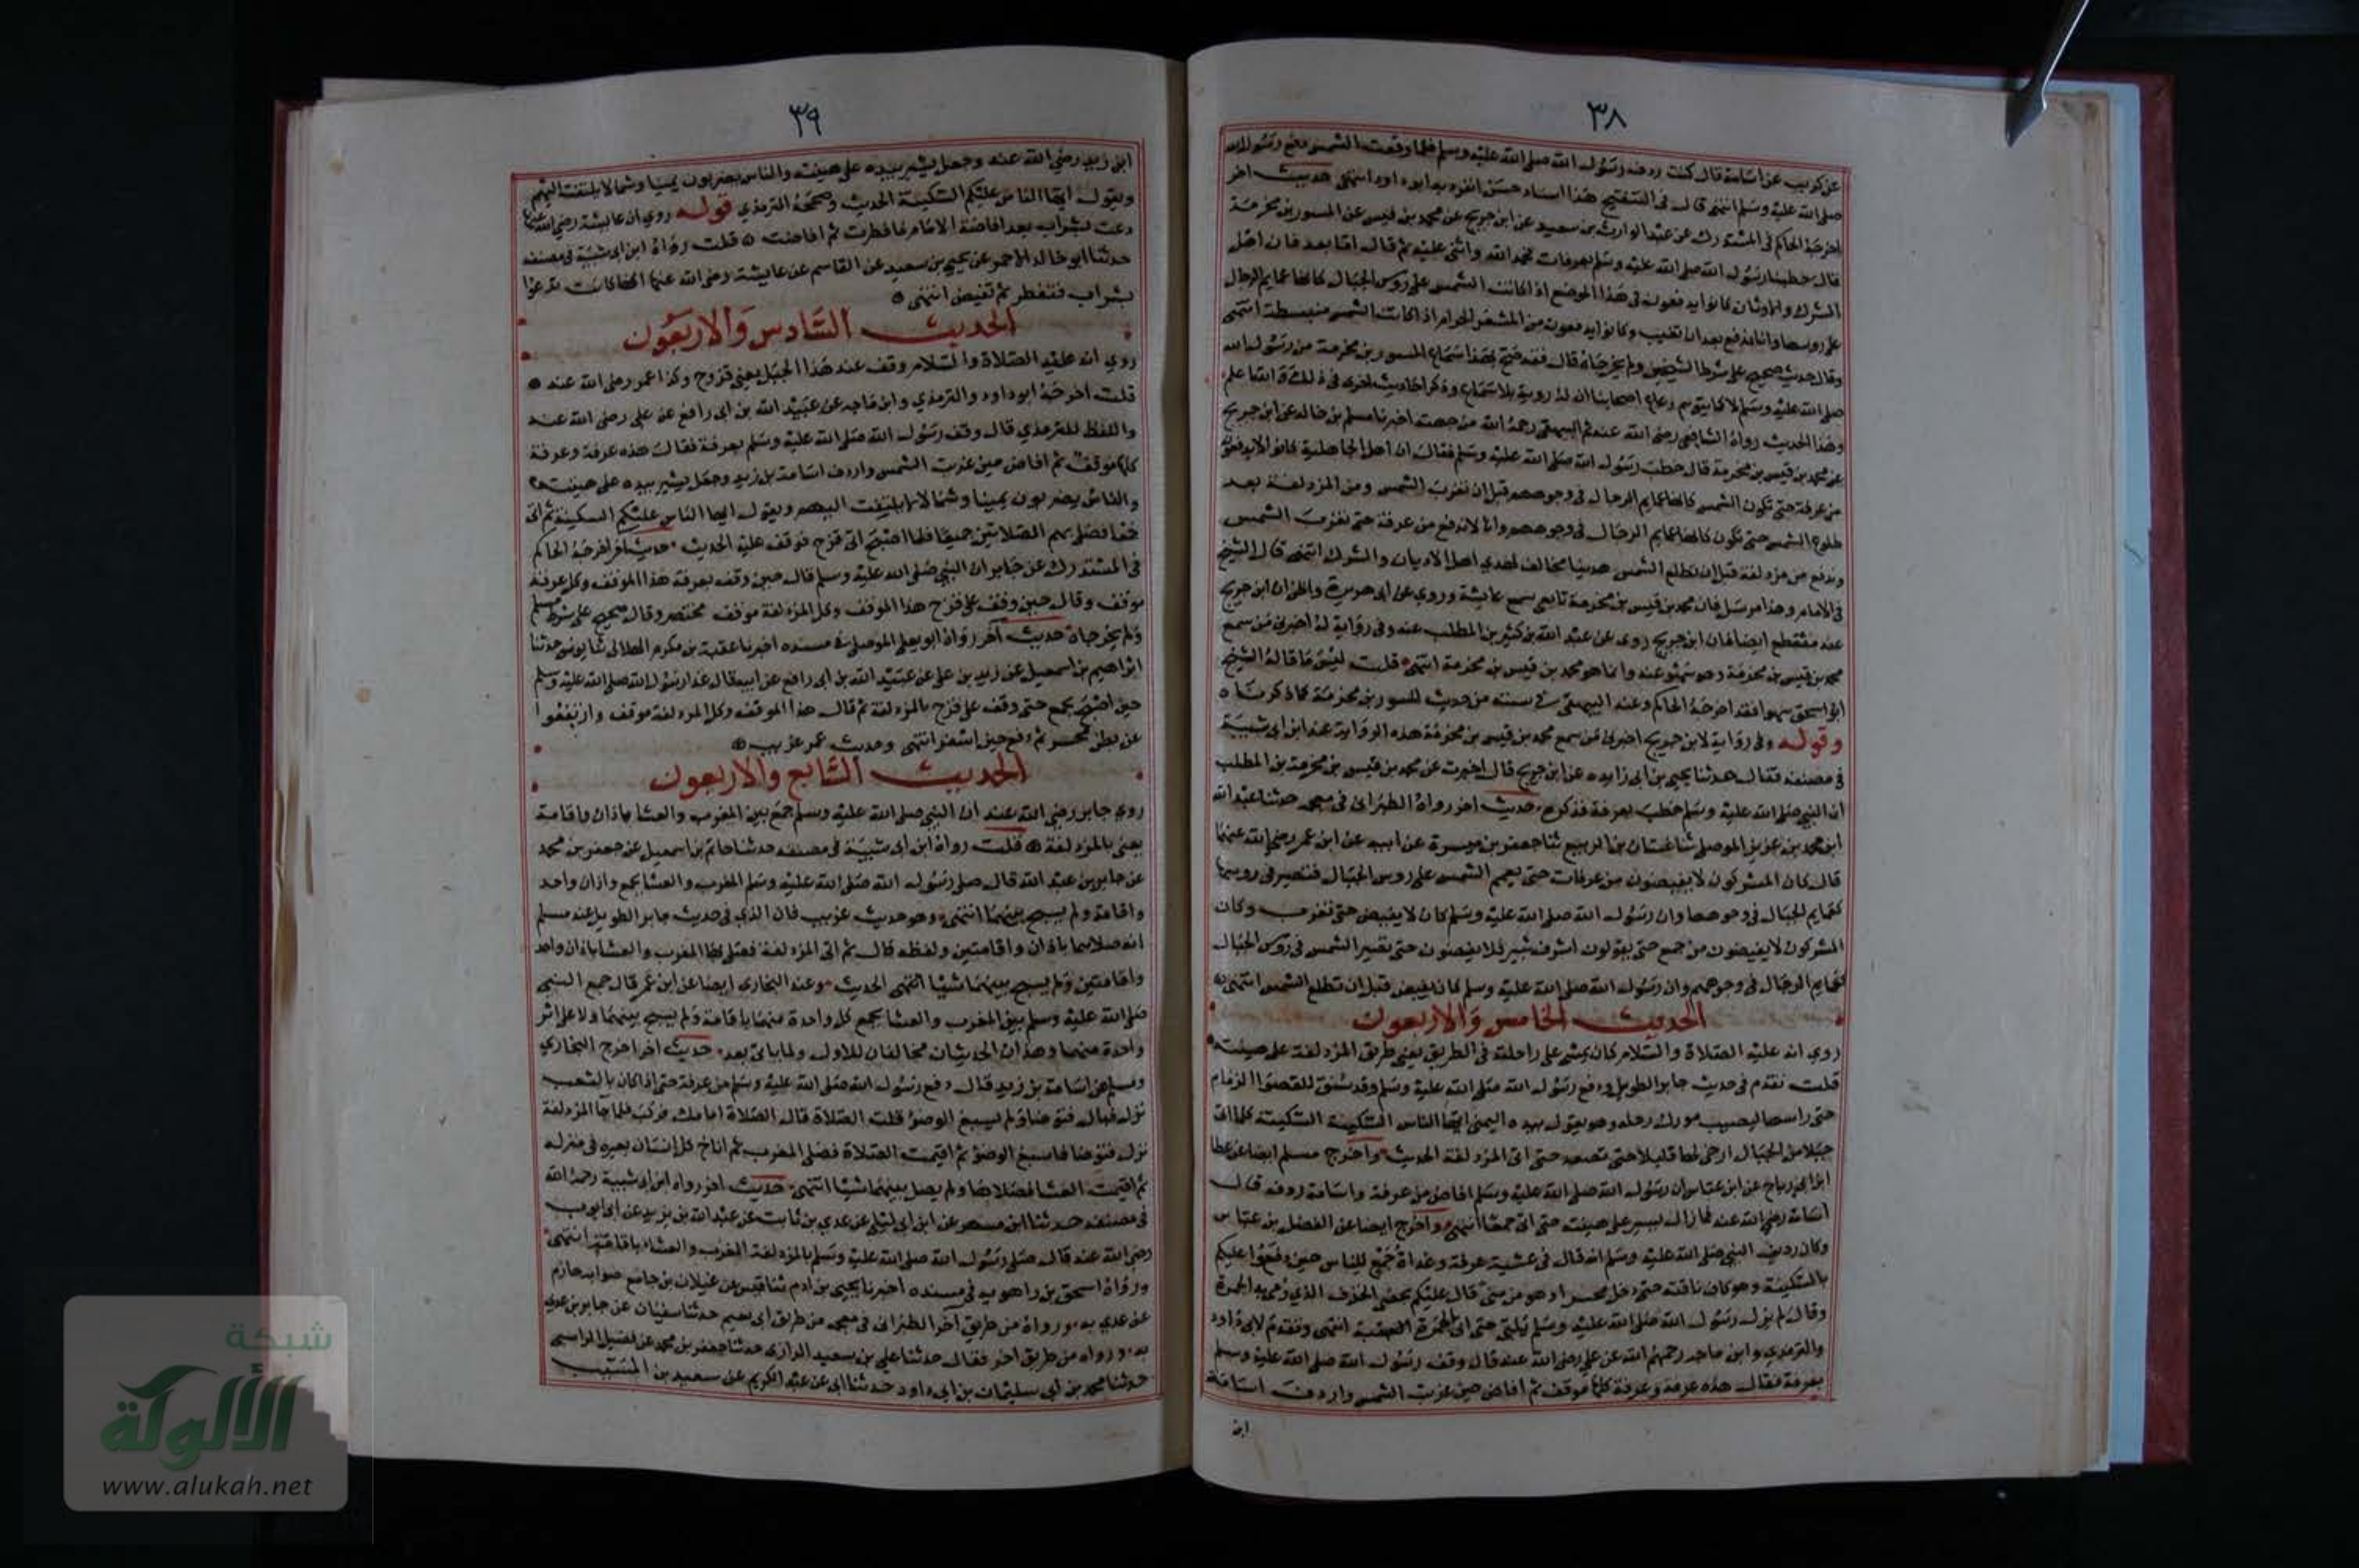 ٣٨
عن كريب عن اسامة قال كنت ردف رسول الله صلى الله عليه وسلم فلما وقعت الشمس دفع رسول الله
صلى الله عليه وسلم انتهى قال في التنقيح هذا اسناد حسن انفرد به ابو داود انتهى حديث اخر
اخرجه الحاكم في المستدرك عن عبد الوارث بن سعيد عن ابن جريج عن محمد بن قيس عن المسور بن مخرمة
قال خطبنا رسول الله صلى الله عليه وسلم بعرفات فحمد الله واثنى عليه ثم قال اما بعد فان اهل
الشرك والاوثان كانوا يدفعون في هذا الموضع اذا كانت الشمس على روس الجبال كانها عمايم الرجال
على روسها وانا ندفع بعد ان تغيب وكانوا يدفعون من المشعر الحرام اذا كانت الشمس منبسطة انتهى
وقال حديث صحيح على شرط الشيخين ولم يخرجاه قال فقد صح بهذا سماع المسور بن مخرمة من رسول الله
صلى الله عليه وسلم لا كما يتوهم رعاع اصحابنا ان له روية بلا سماع وذكر احاديث اخرى في ذلك والله اعلم
وهذا الحديث رواه الشافعي رضي الله عنه ثم البيهقي رحمه الله من جهته اخبرنا مسلم بن خالد عن ابن جريج
عن محمد بن قيس بن مخرمة قال خطب رسول الله صلى الله عليه وسلم فقال ان اهل الجاهلية كانوا لا يدفعون
من عرفة حتى تكون الشمس كانها عمايم الرجال في وجوههم قبل ان تغرب الشمس ومن المزدلفة بعد
طلوع الشمس حتى تكون كانها عمايم الرجال في وجوههم وانا لا ندفع من عرفة حتى تغرب الشمس
وندفع من مزدلفة قبل ان تطلع الشمس هدينا مخالف لهدي اهل الاديان والشرك انتهى قال الشيخ
في الامام وهذا مرسل فان محمد بن قيس بن مخرمة تابعي سمع عايشة وروى عن ابي هريرة واظن ان ابن جريج
عنه منقطع ايضا فان ابن جريج روى عن عبد الله بن كثير بن المطلب عنه وفي رواية له اخبرني من سمع
محمد بن قيس بن مخرمة وهو سهو عنه وانما هو محمد بن قيس بن مخرمة انتهى قلت ليس ما قاله الشيخ
ابو اسحق سهوا فقد اخرجه الحاكم وعنه البيهقي في سننه من حديث المسور بن مخرمة كما ذكرناه
وقوله وفي رواية لابن جريج اخبرني من سمع محمد بن قيس بن مخرمة هذه الرواية عند ابن ابي شيبة
في مصنفه فقال حدثنا يحيى بن ابي زايده عن ابن جريج قال اخبرت عن محمد بن قيس بن مخرمة بن المطلب
ان النبي صلى الله عليه وسلم خطب بعرفة فذكره حديث اخر رواه الطبراني في معجمه حدثنا عبد الله
ابن محمد بن عزيز الموصلي ثنا غسان بن الربيع ثنا جعفر بن ميسرة عن ابيه عن ابن عمر رضي الله عنهما
قال كان المشركون لا يفيضون من عرفات حتى يعمم الشمس على روس الجبال فتصير في روسها
كعمايم الجبال في وجوهها وان رسول الله صلى الله عليه وسلم كان لا يفيض حتى تغرب وكان
المشركون لا يفيضون من جمع حتى يقولون اشرف ثبير فلا يفيضون حتى تصير الشمس في روس الجبال
كعمايم الرجال في وجوههم وان رسول الله صلى الله عليه وسلم كان يفيض قبل ان تطلع الشمس انتهى
الحديث الخامس والاربعون
روي انه عليه الصلاة والسلام كان يمشي على راحلته في الطريق يعني طريق المزدلفة على هينته
قلت تقدم في حديث جابر الطويل ودفع رسول الله صلى الله عليه وسلم وقد شنق للقصوا الزمام
حتى راسها ليصيب مورك رحله وهو يقول بيده اليمنى ايها الناس السكينة السكينة كلما اتى
جبلا من الجبال ارخى لها قليلا حتى تصعد حتى اتى المزدلفة الحديث واخرج مسلم ايضا عن عطا
ابن ابي رباح عن ابن عباس ان رسول الله صلى الله عليه وسلم افاض من عرفة واسامة ردفه قال
اسامة رضي الله عنه فما زال يسير على هينته حتى اتى جمعا انتهى واخرج ايضا عن الفضل بن عباس
وكان رديف النبي صلى الله عليه وسلم انه قال في عشية عرفة وغداة جمع للناس حين دفعوا عليكم
بالسكينة وهو كاف ناقته حتى دخل محسرا وهو من منى قال عليكم بحصى الخذف الذي يرمى به الجمرة
وقال لم يزل رسول الله صلى الله عليه وسلم يلبي حتى اتى الجمرة العقبة انتهى وتقدم لابي داود
والترمذي وابن ماجه رحمهم الله عن علي رضي الله عنه قال وقف رسول الله صلى الله عليه وسلم
بعرفة فقال هذه عرفة وعرفة كلها موقف ثم افاض حين غربت الشمس واردف اسامة
ابن
٣٩
ابن زيد رضي الله عنه وجعل يشير بيده على هينته والناس يضربون يمينا وشمالا يلتفت اليهم
ويقول ايها الناس عليكم السكينة الحديث وصححه الترمذي قوله روي ان عايشة رضي الله عنها
دعت بشراب بعد افاضة الامام فافطرت ثم افاضت قلت رواه ابن ابي شيبة في مصنفه
حدثنا ابو خالد الاحمر عن يحيى بن سعيد عن القاسم عن عايشة رضي الله عنها انها كانت تدعوا
بشراب فتفطر ثم تفيض انتهى
الحديث السادس والاربعون
روي انه عليه الصلاة والسلام وقف عند هذا الجبل يعني قزوح وكذا عمر رضي الله عنه
قلت اخرجه ابو داود والترمذي وابن ماجه عن عبيد الله بن ابي رافع عن علي رضي الله عنه
واللفظ للترمذي قال وقف رسول الله صلى الله عليه وسلم بعرفة فقال هذه عرفة وعرفة
كلها موقف ثم افاض حين غربت الشمس واردف اسامة بن زيد وجعل يشير بيده على هينته
والناس يضربون يمينا وشمالا يلتفت اليهم ويقول ايها الناس عليكم السكينة ثم اتى
جمعا فصلى بهم الصلاتين جميعا فلما اصبح اتى قزح فوقف عليه الحديث حديث اخر اخرجه الحاكم
في المستدرك عن جابر ان النبي صلى الله عليه وسلم قال حين وقف بعرفة هذا الموقف وكل عرفة
موقف وقال حين وقف على قزح هذا الموقف وكل المزدلفة موقف مختصر وقال صحيح على شرط مسلم
ولم يخرجاه حديث آخر رواه ابو يعلى الموصلي في مسنده اخبرنا عقبة بن مكرم الهلالي ثنا يونس حدثنا
ابراهيم بن اسمعيل عن زيد بن علي عن عبيد الله بن ابي رافع عن ابيه قال غدا رسول الله صلى الله عليه وسلم
حين اصبح بجمع حتى وقف على قزح بالمزدلفة ثم قال هذا الموقف وكل المزدلفة موقف وارتفعوا
عن بطن محسر ثم دفع حين اسفر انتهى وحديث عمر غريب
الحديث السابع والاربعون
روي جابر رضي الله عنه ان النبي صلى الله عليه وسلم جمع بين المغرب والعشا باذان واقامة
يعني بالمزدلفة قلت رواه ابن ابي شيبة في مصنفه حدثنا حاتم بن اسمعيل عن جعفر بن محمد
عن جابر بن عبد الله قال صلى رسول الله صلى الله عليه وسلم المغرب والعشا بجمع واذان واحد
واقامة ولم يسبح بينهما انتهى وهو حديث غريب فان الذي في حديث جابر الطويل عند مسلم
انه صلاهما باذان واقامتين ولفظه قال ثم اتى المزدلفة فصلى بها المغرب والعشا باذان واحد
واقامتين ولم يسبح بينهما شيا انتهى الحديث وعند البخاري ايضا عن ابن عمر قال جمع النبي
صلى الله عليه وسلم بين المغرب والعشا بجمع كل واحدة منهما باقامة ولم يسبح بينهما ولا على اثر
واحدة منهما وهذان الحديثان مخالفان للاول ولما ياتي بعد حديث اخر اخرج البخاري
ومسلم عن اسامة بن زيد قال دفع رسول الله صلى الله عليه وسلم من عرفة حتى اذا كان بالشعب
نزل فبال فتوضا ولم يسبغ الوضو قلت الصلاة قال الصلاة امامك فركب فلما جا المزدلفة
نزل فتوضا فاسبغ الوضو ثم اقيمت الصلاة فصلى المغرب ثم اناخ كل انسان بعيره في منزله
ثم اقيمت العشا فصلاها ولم يصل بينهما شيا انتهى حديث اخر رواه ابن ابي شيبة رحمه الله
في مصنفه حدثنا ابن مسهر عن ابن ابي ليلى عن عدي بن ثابت عن عبد الله بن يزيد عن ابي ايوب
رضي الله عنه قال صلى رسول الله صلى الله عليه وسلم بالمزدلفة المغرب والعشاء باقامة انتهى
ورواه اسحق بن راهويه في مسنده اخبرنا يحيى بن ادم ثنا قيس عن غيلان بن جامع
عن عدي به ورواه من طريق آخر الطبراني في معجمه من طريق ابي نعيم حدثنا سفيان عن جابر بن عدي
به ورواه من طريق اخر فقال حدثنا علي بن سعيد الرازي حدثنا جعفر بن محمد بن فضيل الراسبي
حدثنا محمد بن ابي سليمان بن ابي داود حدثنا ابي عن عبد الكريم عن سعيد بن المسيب
شبكة
الألوكة
www.alukah.net